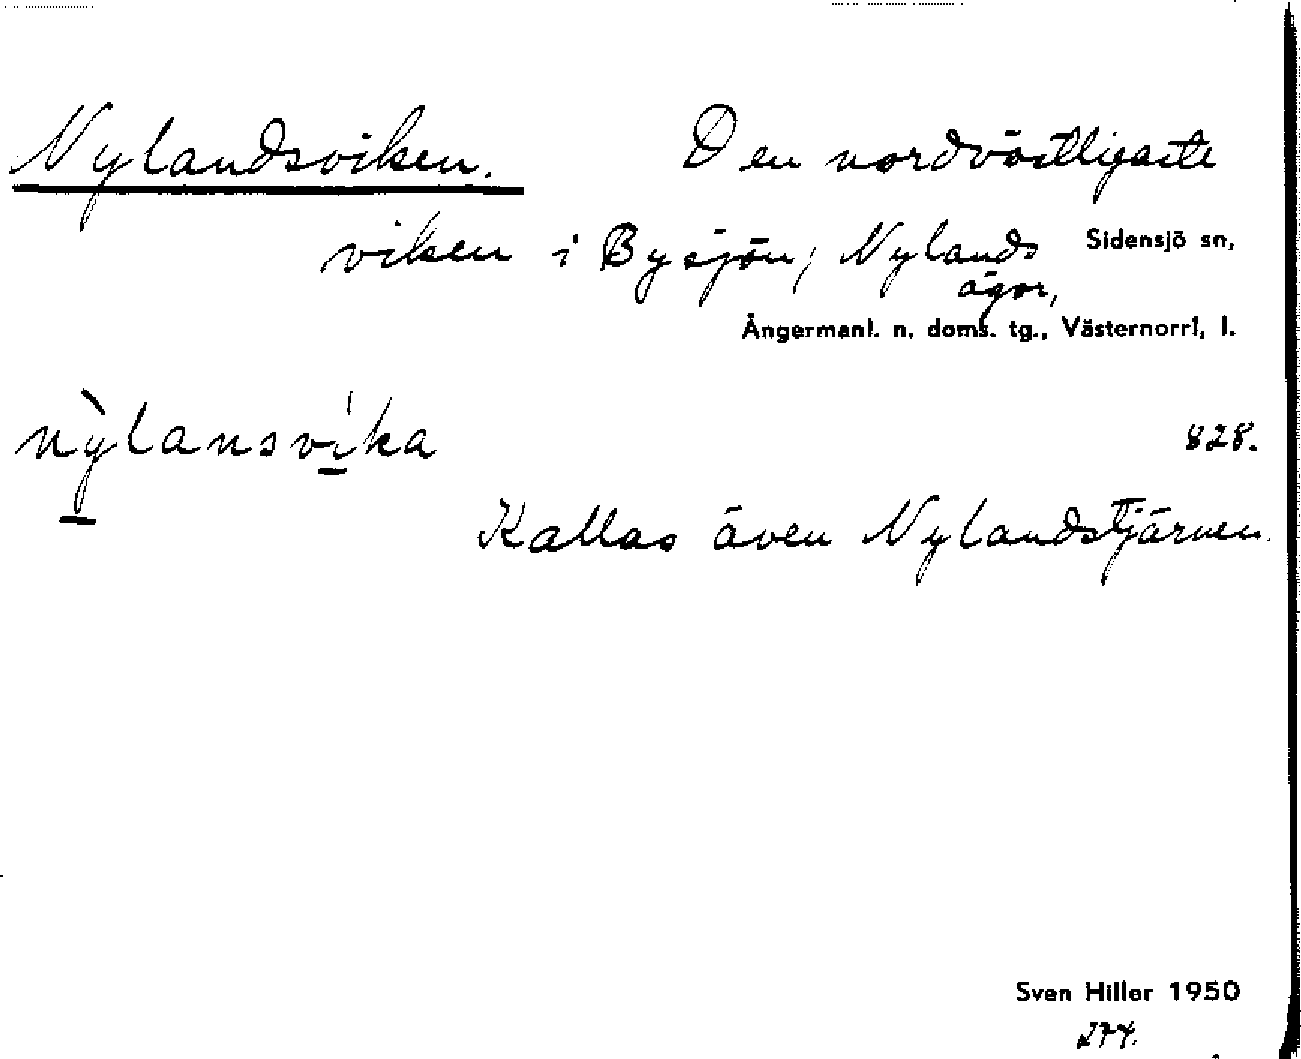 Nylandsviken. Den nordvästligaste
viken i Bysjön, Nylands Sidensjö sn,
ägor,
Ångermanl. n. doms. tg., Västernorrl. l.
nỳlansvíka
828.
Kallas även Nylandstjärnen.
Sven Hiller 1950
274.